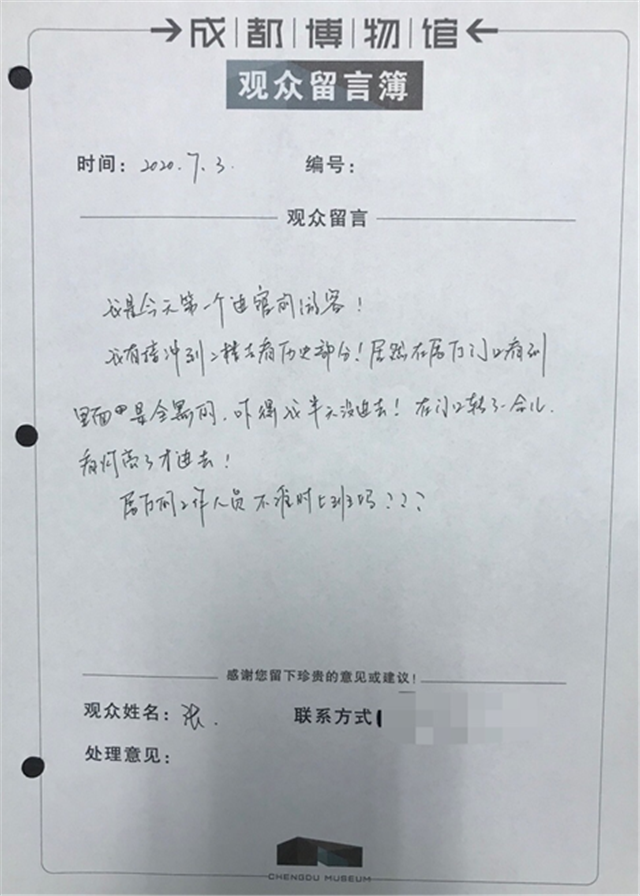 成都博物馆
观众留言簿
时间：2020.7.3. 编号：
观众留言
我是今天第一个进馆的游客！
我直接冲到2楼去看历史部分！居然在展厅门口看到
里面中是全黑的，吓得我半天没进去！在门口转了一会儿，
看灯亮了才进去！
展厅的工作人员不准时上班吗？？？
感谢您留下珍贵的意见或建议！
观众姓名：张. 联系方式
处理意见：
CHENGDU MUSEUM